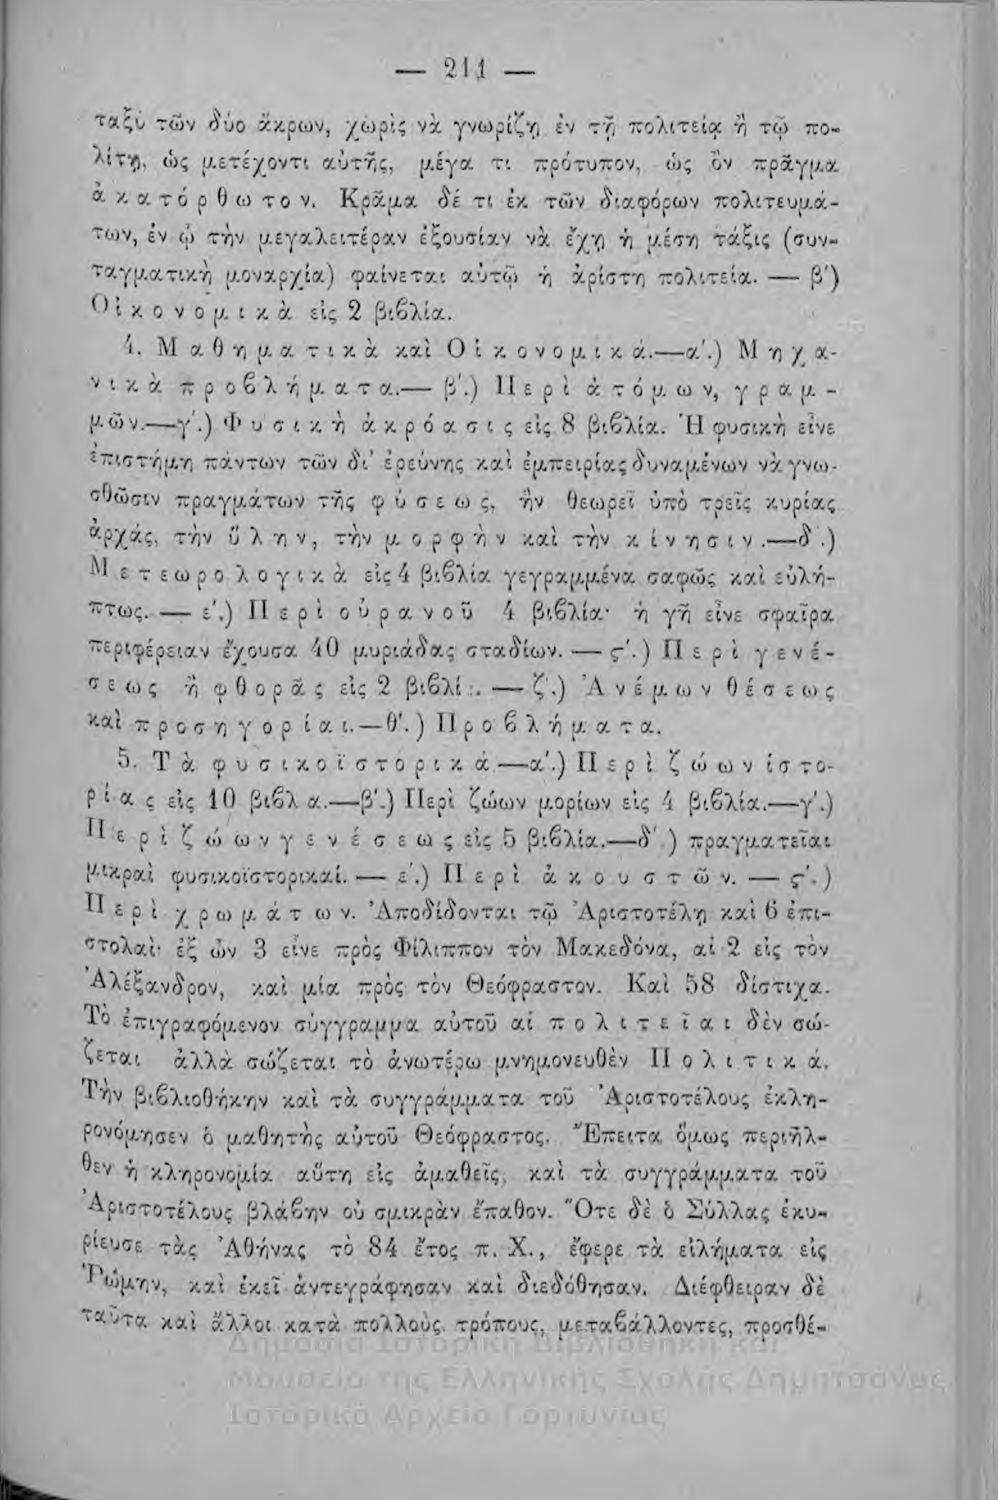 — 211 —
ταξὺ τῶν δύο ἄκρων, χωρὶς νὰ γνωρίζῃ ἐν τῇ πολιτείᾳ ἢ τῷ πο-
λίτῃ, ὡς μετέχοντι αὐτῆς, μέγα τι πρότυπον, ὡς ὂν πρᾶγμα
ἀκατόρθωτον. Κρᾶμα δέ τι ἐκ τῶν διαφόρων πολιτευμά-
των, ἐν ᾧ τὴν μεγαλειτέραν ἐξουσίαν νὰ ἔχῃ ἡ μέση τάξις (συν-
ταγματικὴ μοναρχία) φαίνεται αὐτῷ ἡ ἀρίστη πολιτεία. — β')
Οἰκονομικὰ εἰς 2 βιβλία.
4. Μαθηματικὰ καὶ Οἰκονομικά.—α'.) Μηχα-
νικὰ προβλήματα.— β'.) Περὶ ἀτόμων, γραμ-
μῶν.—γ'.) Φυσικὴ ἀκρόασις εἰς 8 βιβλία. Ἡ φυσικὴ εἶνε
ἐπιστήμη πάντων τῶν δι' ἐρεύνης καὶ ἐμπειρίας δυναμένων νὰ γνω-
σθῶσιν πραγμάτων τῆς φύσεως, ἣν θεωρεῖ ὑπὸ τρεῖς κυρίας
ἀρχάς, τὴν ὕλην, τὴν μορφὴν καὶ τὴν κίνησιν.—δ'.)
Μετεωρολογικὰ εἰς 4 βιβλία γεγραμμένα σαφῶς καὶ εὐλή-
πτως. — ε'.) Περὶ οὐρανοῦ 4 βιβλία· ἡ γῆ εἶνε σφαῖρα
περιφέρειαν ἔχουσα 40 μυριάδας σταδίων. — ς'.) Περὶ γενέ-
σεως ἢ φθορᾶς εἰς 2 βιβλία. — ζ'.) Ἀνέμων θέσεως
καὶ προσηγορίαι.—θ'.) Προβλήματα.
5. Τὰ φυσικοϊστορικά.—α'.) Περὶ ζώων ἱστο-
ρίας εἰς 10 βιβλ α.—β'.) Περὶ ζώων μορίων εἰς 4 βιβλία.—γ'.)
Περὶ ζώων γενέσεως εἰς 5 βιβλία.—δ'.) πραγματεῖαι
μικραὶ φυσικοϊστορικαί. — ε'.) Περὶ ἀκουστῶν. — ς'.)
Περὶ χρωμάτων. Ἀποδίδονται τῷ Ἀριστοτέλῃ καὶ 6 ἐπι-
στολαὶ· ἐξ ὧν 3 εἶνε πρὸς Φίλιππον τὸν Μακεδόνα, αἱ 2 εἰς τὸν
Ἀλέξανδρον, καὶ μία πρὸς τὸν Θεόφραστον. Καὶ 58 δίστιχα.
Τὸ ἐπιγραφόμενον σύγγραμμα αὐτοῦ αἱ πολιτεῖαι δὲν σώ-
ζεται ἀλλὰ σώζεται τὸ ἀνωτέρω μνημονευθὲν Πολιτικά.
Τὴν βιβλιοθήκην καὶ τὰ συγγράμματα τοῦ Ἀριστοτέλους ἐκλη-
ρονόμησεν ὁ μαθητὴς αὐτοῦ Θεόφραστος. Ἔπειτα ὅμως περιῆλ-
θεν ἡ κληρονομία αὕτη εἰς ἀμαθεῖς, καὶ τὰ συγγράμματα τοῦ
Ἀριστοτέλους βλάβην οὐ σμικρὰν ἔπαθον. Ὅτε δὲ ὁ Σύλλας ἐκυ-
ρίευσε τὰς Ἀθήνας τὸ 84 ἔτος π. Χ., ἔφερε τὰ εἰλήματα εἰς
Ῥώμην, καὶ ἐκεῖ ἀντεγράφησαν καὶ διεδόθησαν. Διέφθειραν δὲ
ταῦτα καὶ ἄλλοι κατὰ πολλοὺς τρόπους, μεταβάλλοντες, προσθέ-
Δημόσια Ιστορική Βιβλιοθήκη και
Μουσείο της Ελληνικής Σχολής Δημητσάνας
Ιστορικό Αρχείο Γορτυνίας